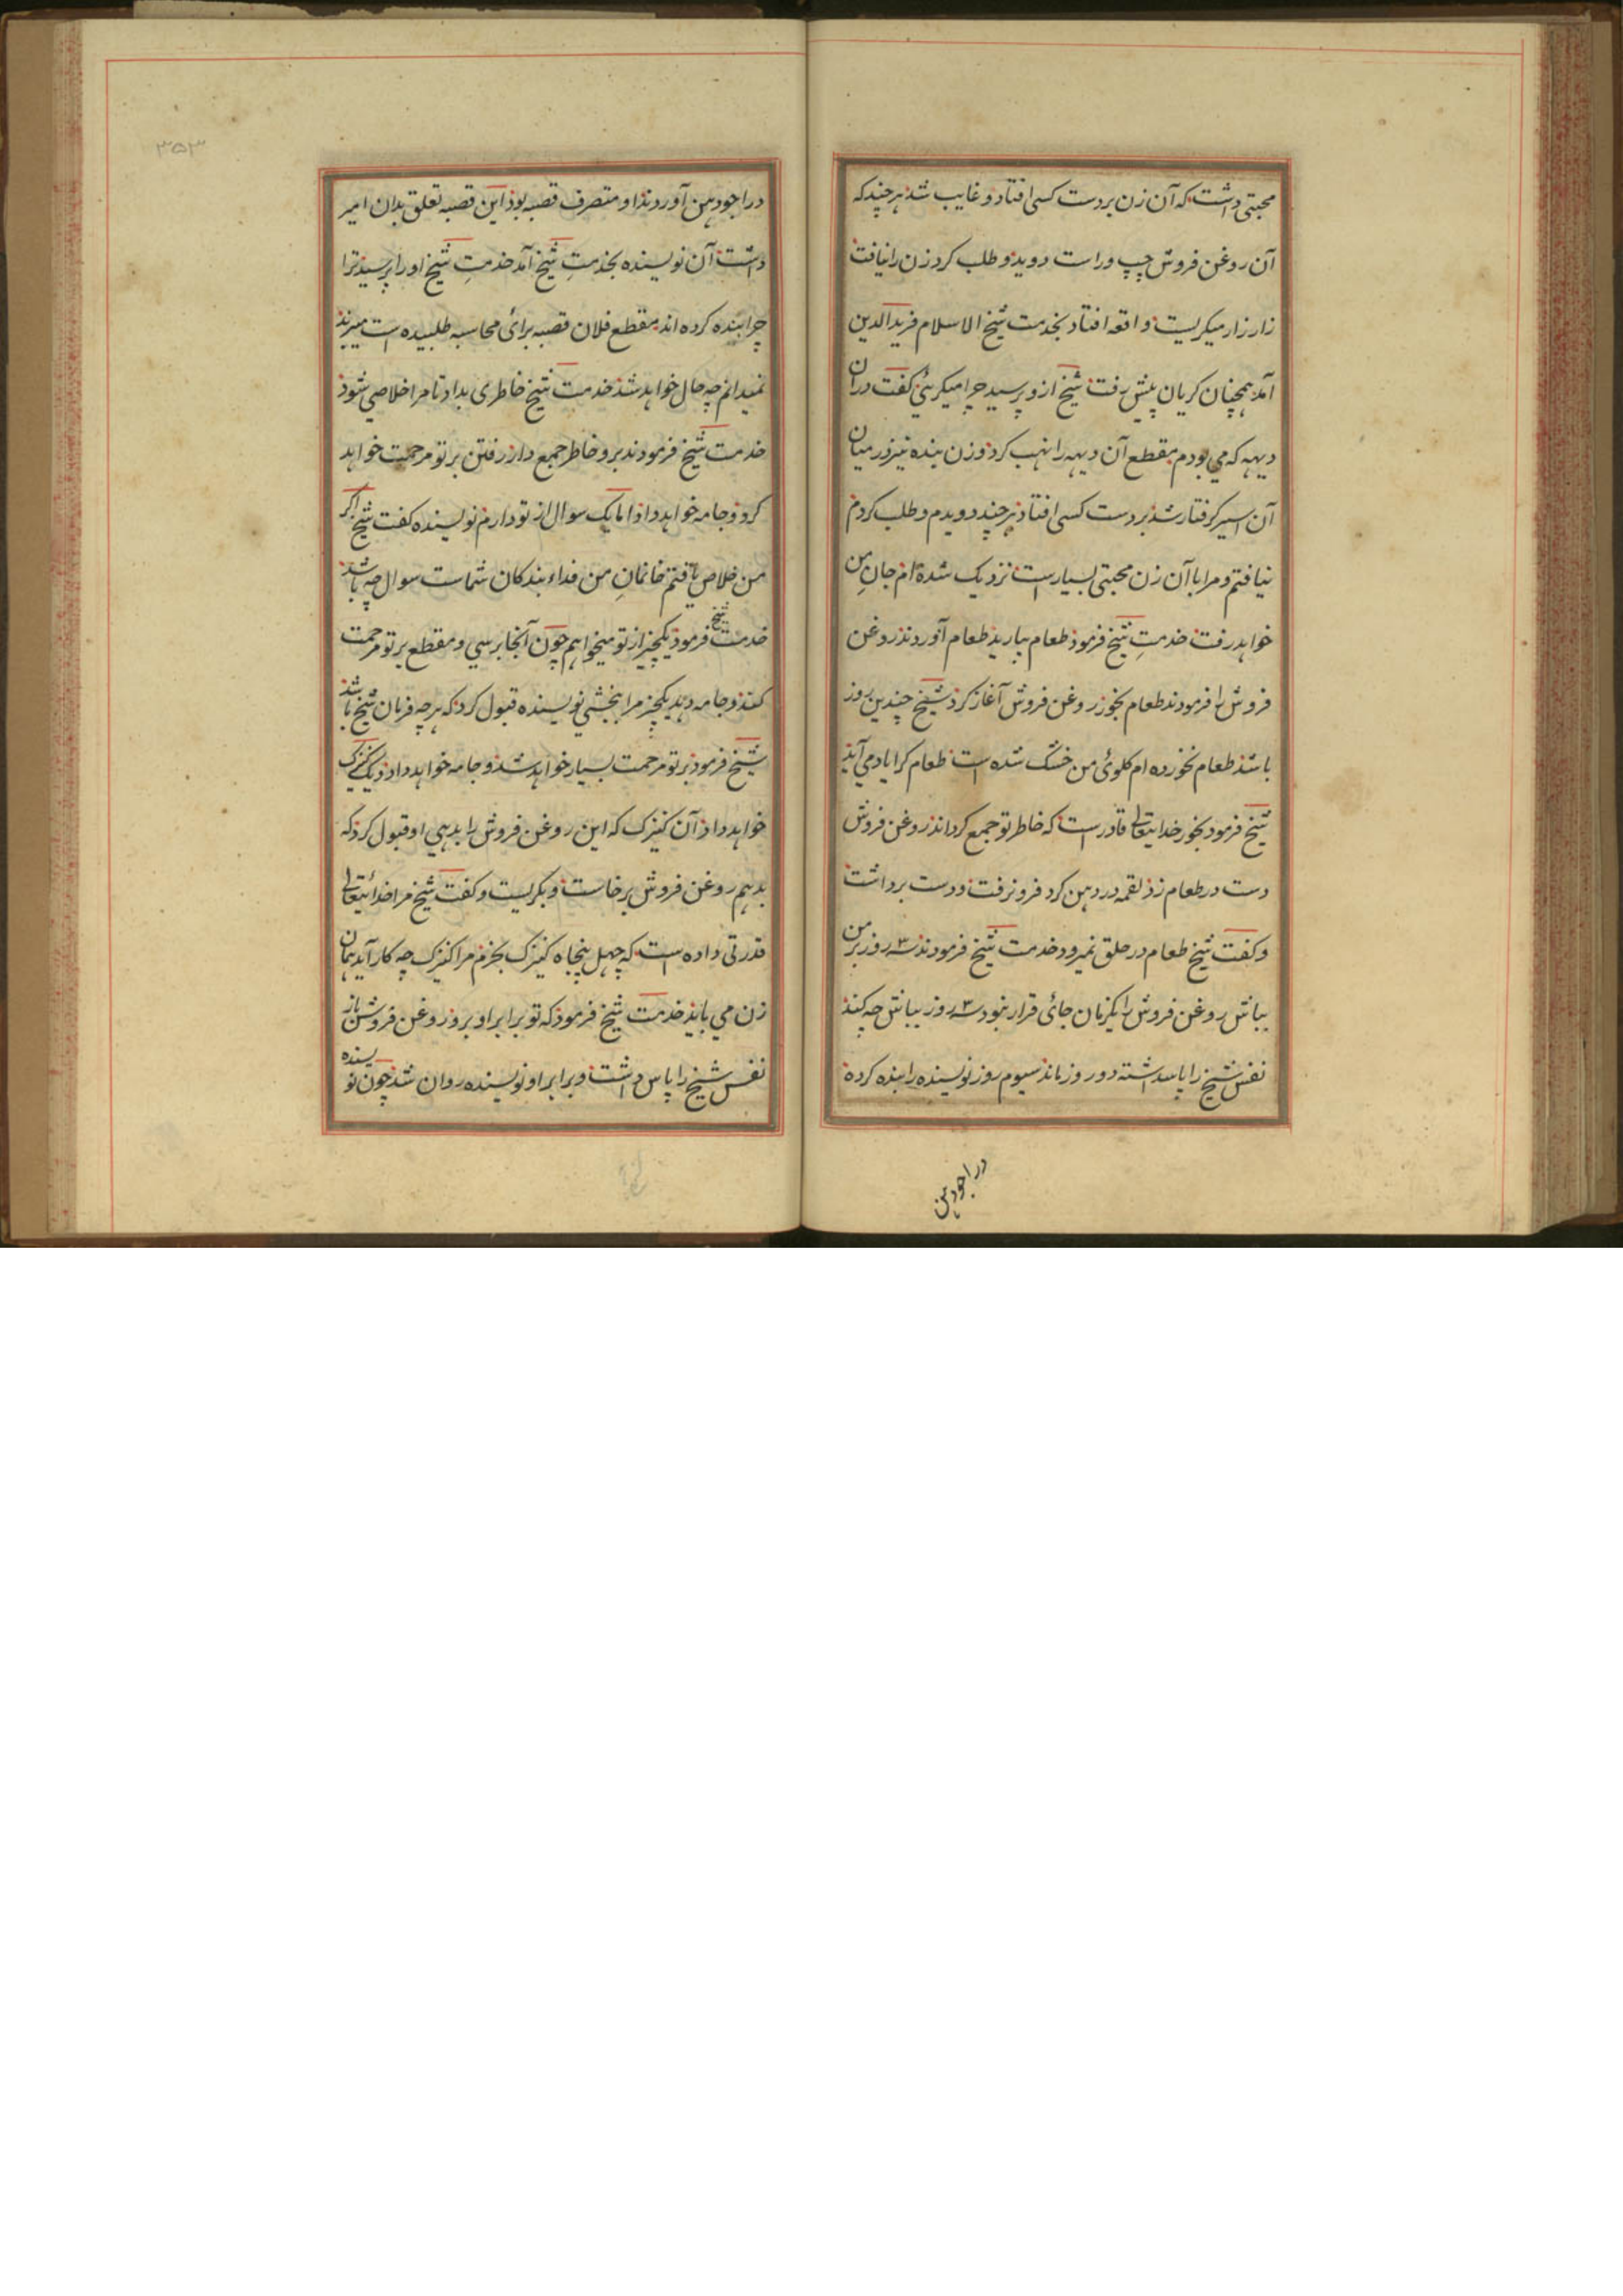 محبتی داشت که آن زن بر دست کسی افتاد و غایب شد هر چند که
آن روغن فروش چپ و راست دوید و طلب کرد زن را نیافت
زار زار میکریست واقعه افتاد بخدمت شیخ الاسلام فرید الدین
آمد همچنان کریان پیش رفت شیخ ازو پرسید چرا میکریی کفت در آن
دیهه که می بودم مقطع آن دیهه را نهب کرد و زن بنده نیز در میان
آن اسیر کرفتار شد بر دست کسی افتاد هر چند دویدم و طلب کردم
نیافتم و مرا با آن زن محبتی بسیارست نزدیک شده ام جان من
خواهد رفت خدمتِ شیخ فرمود طعام بیارید طعام آوردند روغن
فروش را فرمودند طعام بخور روغن فروش آغاز کرد شیخ چندین روز
باشد طعام نخورده ام کلوئی من خشک شده است طعام کرا یاد می آید
شیخ فرمود بخور خدایتعالی قادرست که خاطر تو جمع کرداند روغن فروش
دست در طعام زد لقمه در دهن کرد فرو نرفت و دست برداشت
و کفت شیخ طعام در حلق نمیرود خدمت شیخ فرمودند سه ۳ روز بر من
بباش روغن فروش را یکزمان جائی قرار نبود سه ۳ روز بباش چه کند
نفس شیخ را پاسداشته دو روز ماند سیوم روز نویسنده را بنده کرده
در اجودهن
۳۵۳
در اجودهن آوردند او متصرف قصبه بود این قصبه تعلق بدان امیر
داشت آن نویسنده بخدمتِ شیخ آمد خدمتِ شیخ او را پرسید ترا
چرا بنده کرده اند مقطع فلان قصبه برائ محاسبه طلبیده است میبرند
نمیدانم چه حال خواهد شد خدمت شیخ خاطری بداد تا مرا خلاصی شود
خدمت شیخ فرمودند برو خاطر جمع دار رفتن بر تو مرحمت خواهد
کرد و جامه خواهد داد اما یک سوال از تو دارم نویسنده کفت شیخ اکر
من خلاص یافتم خانمانِ من فداء بندکان شماست سوال چه باشد
خدمت شیخ فرمود یکچیز از تو میخواهم چون آنجا برسی و مقطع بر تو مرحمت
کند و جامه دهد یکچیز مرا بخشی نویسنده قبول کرد که هر چه فرمان شیخ باشد
شیخ فرمود بر تو مرحمت بسیار خواهد شد و جامه خواهد داد و یک کنیزک
خواهد داد آن کنیزک که این روغن فروش را بدهی او قبول کرد که
بدهم روغن فروش برخاست و بکریست و کفت شیخ مرا خدائیتعالی
قدرتی داده است که چهل پنجاه کنیزک بخرم مرا کنیزک چه کار آید همان
زن می باید خدمت شیخ فرمود که تو برابر او برو روغن فروش باز
نفس شیخ را پاس داشت و برابر او نویسنده روان شد چون نویسنده